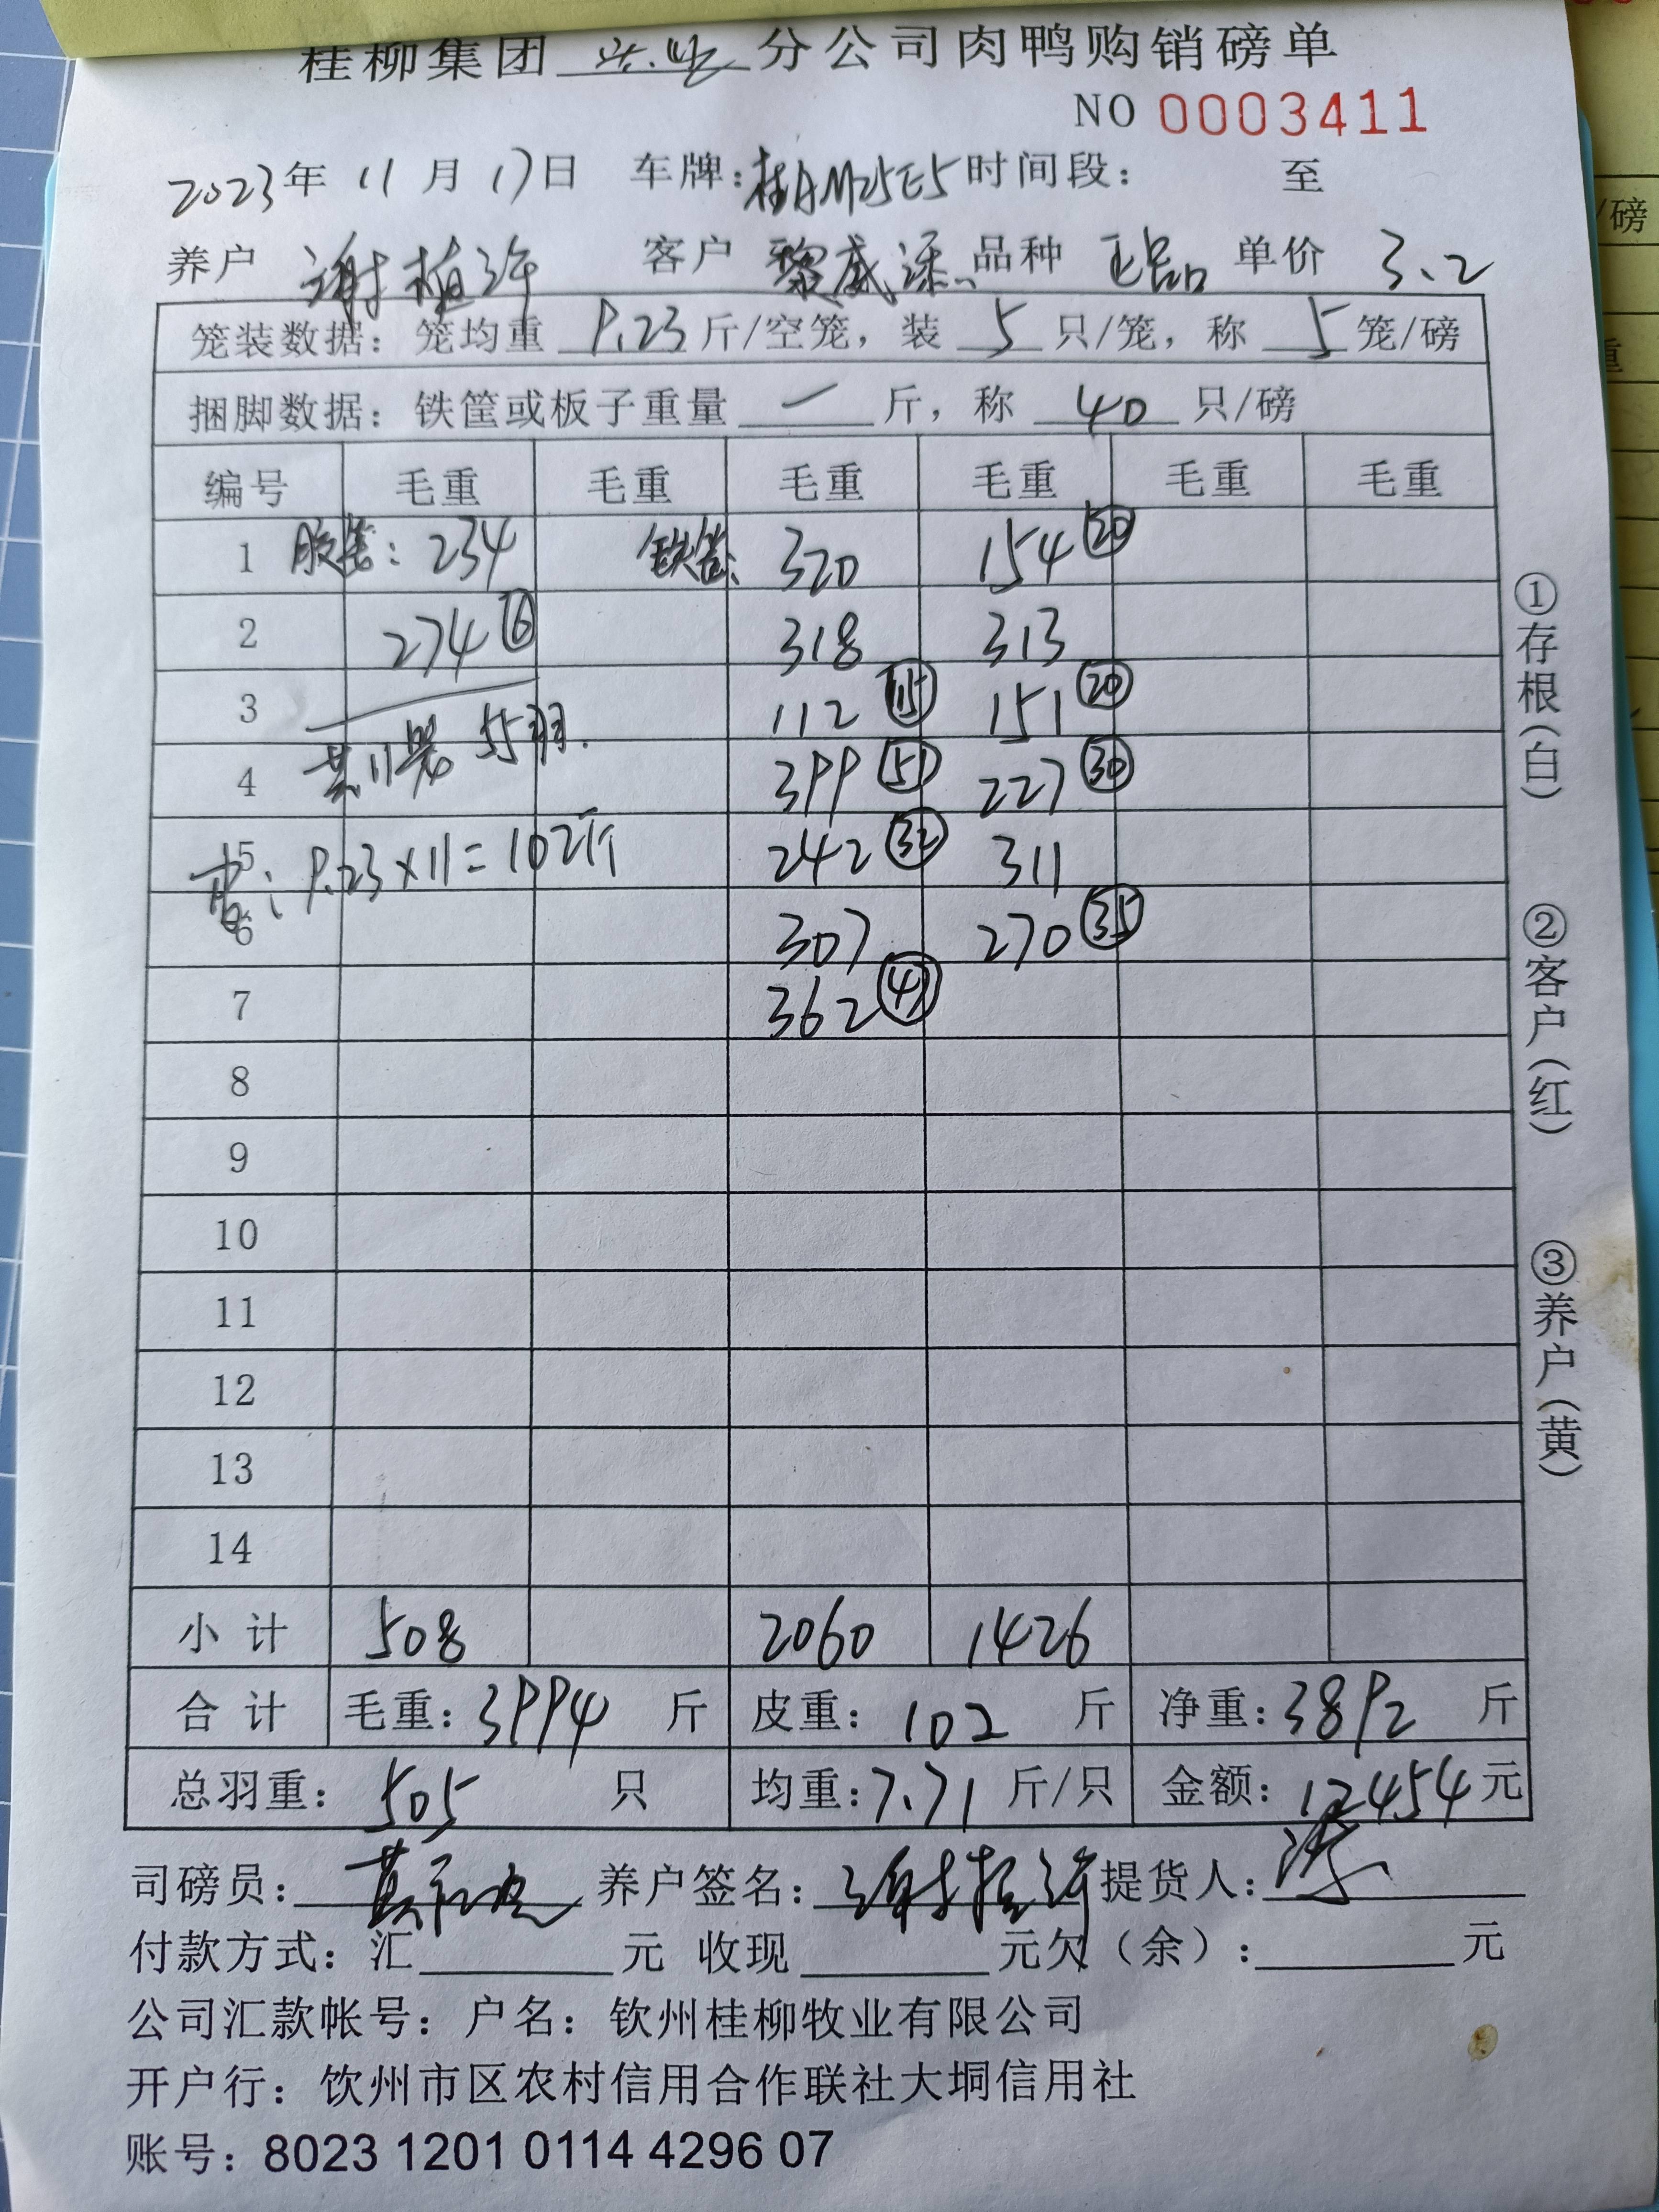 桂柳集团 分公司肉鸭购销磅单
NO 0003411
2023年 11月 17日 车牌:桂AM25E5 时间段: 至
养户 谢植许 客户 黎威 品种 正品 单价 3.2
笼装数据: 笼均重 9.23 斤/空笼, 装 5 只/笼, 称 5 笼/磅
捆脚数据: 铁筐或板子重量 一 斤, 称 40 只/磅
编号 毛重 毛重 毛重 毛重 毛重 毛重
1 胶筐: 234 铁筐: 320 154 ⑳
2 274 ⑥ 318 313
3 112 ⑮ 151 ⑳
共11笼 55羽.
4 399 51 227 ㉚
5 242 ㉜ 311
皮: 9.23×11=102斤
6 307 270 ㉟
7 362
8
9
10
11
12
13
14
小计 508 2060 1426
合计 毛重: 3994 斤 皮重: 102 斤 净重: 3892 斤
总羽重: 505 只 均重: 7.71 斤/只 金额: 12454 元
司磅员: 养户签名: 谢植许 提货人:
付款方式: 汇 元 收现 元欠(余): 元
公司汇款帐号: 户名: 钦州桂柳牧业有限公司
开户行: 饮州市区农村信用合作联社大垌信用社
账号: 8023 1201 0114 4296 07
①存根(白)
②客户(红)
③养户(黄)
/磅
重